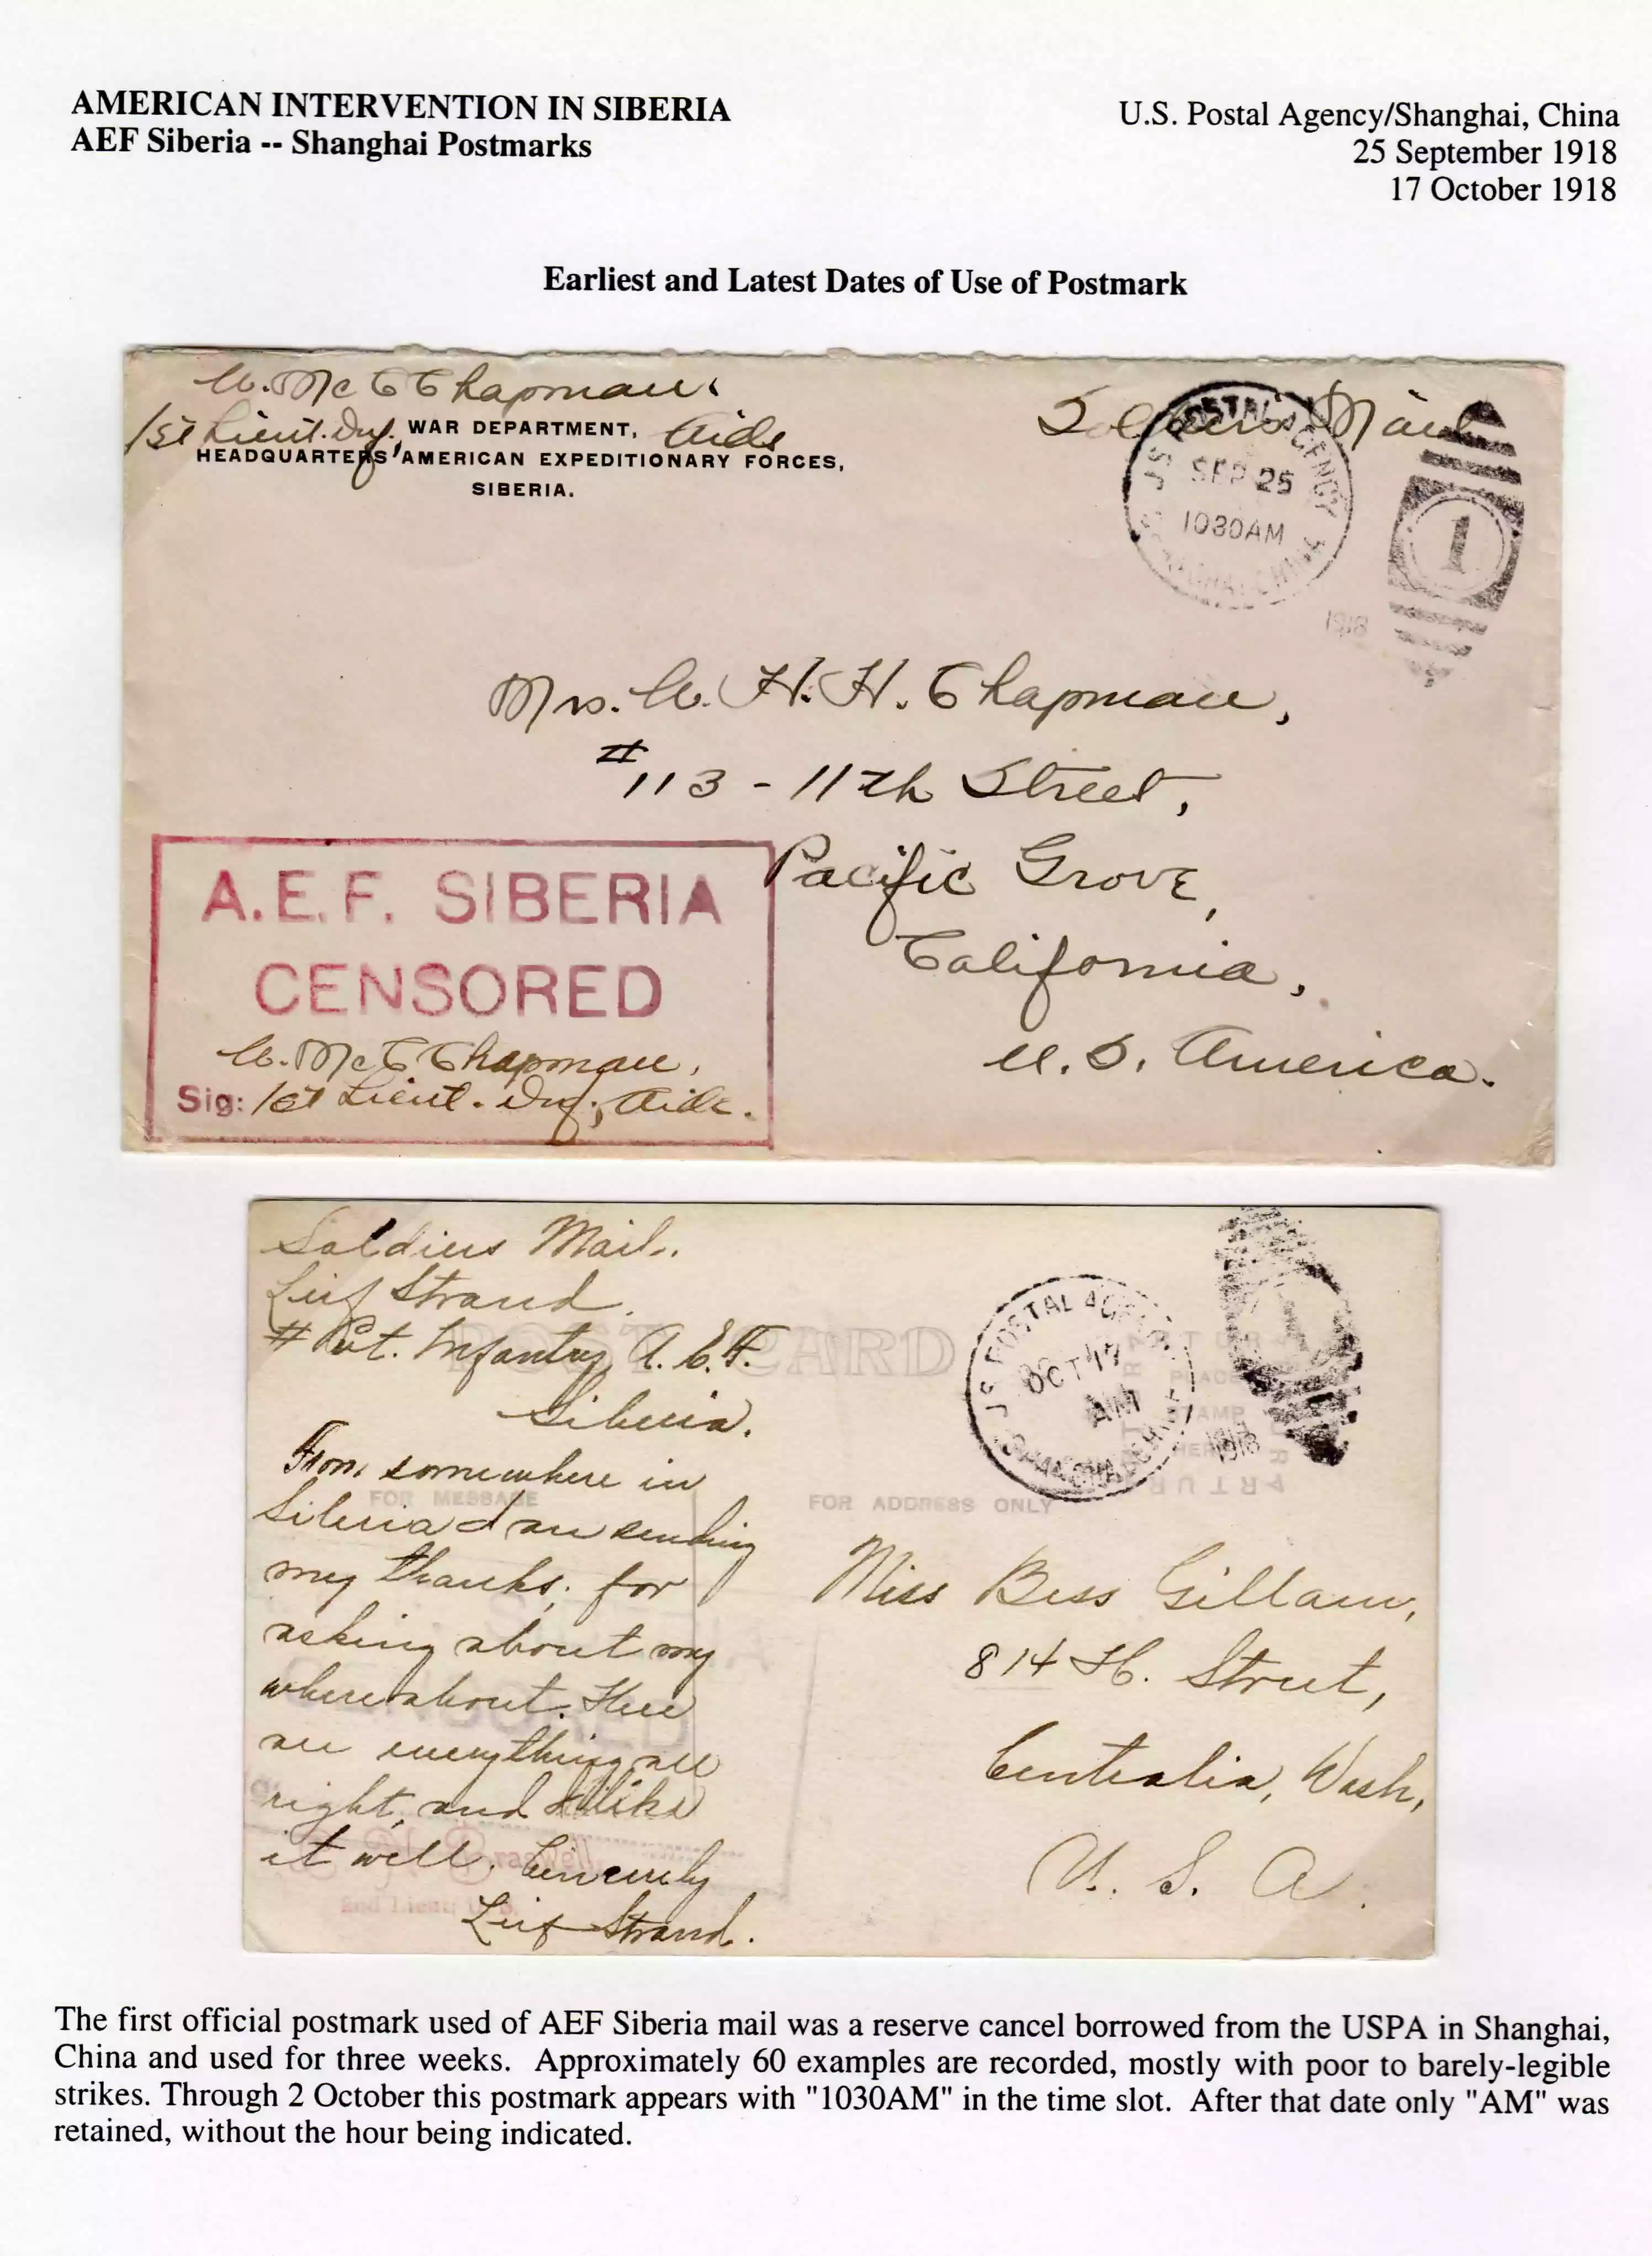 AMERICAN INTERVENTION IN SIBERIA
AEF Siberia -- Shanghai Postmarks
U.S. Postal Agency/Shanghai, China
25 September 1918
17 October 1918
Earliest and Latest Dates of Use of Postmark
W. McC Chapman.
1st Lieut. Inf., Aide
WAR DEPARTMENT,
HEADQUARTERS AMERICAN EXPEDITIONARY FORCES,
SIBERIA.
Soldiers Mail
U.S. POSTAL AGENCY
SEP 25
1030AM
SHANGHAI CHINA
1918
1
Mrs. W. H. H. Chapman,
#113 - 11th Street,
Pacific Grove,
California,
U. S. America.
A.E.F. SIBERIA
CENSORED
W. McC Chapman,
Sig: 1st Lieut. Inf., Aide.
Soldiers Mail.
Leif Strand.
# Pvt. Infantry, A. E. F.
Siberia.
POST CARD
U.S. POSTAL AGENCY
OCT 17
AM
SHANGHAI CHINA
1918
1
PLACE
STAMP
HERE
From somewhere in
Siberia I am sending
my thanks, for
asking about my
whereabout. Here
are everything all
right, and I like
it well. Sincerely
Leif Strand.
FOR MESSAGE
FOR ADDRESS ONLY
Miss Bess Gillam,
814 H. Street,
Centralia, Wash,
U. S. A.
2nd Lieut.
The first official postmark used of AEF Siberia mail was a reserve cancel borrowed from the USPA in Shanghai,
China and used for three weeks. Approximately 60 examples are recorded, mostly with poor to barely-legible
strikes. Through 2 October this postmark appears with "1030AM" in the time slot. After that date only "AM" was
retained, without the hour being indicated.